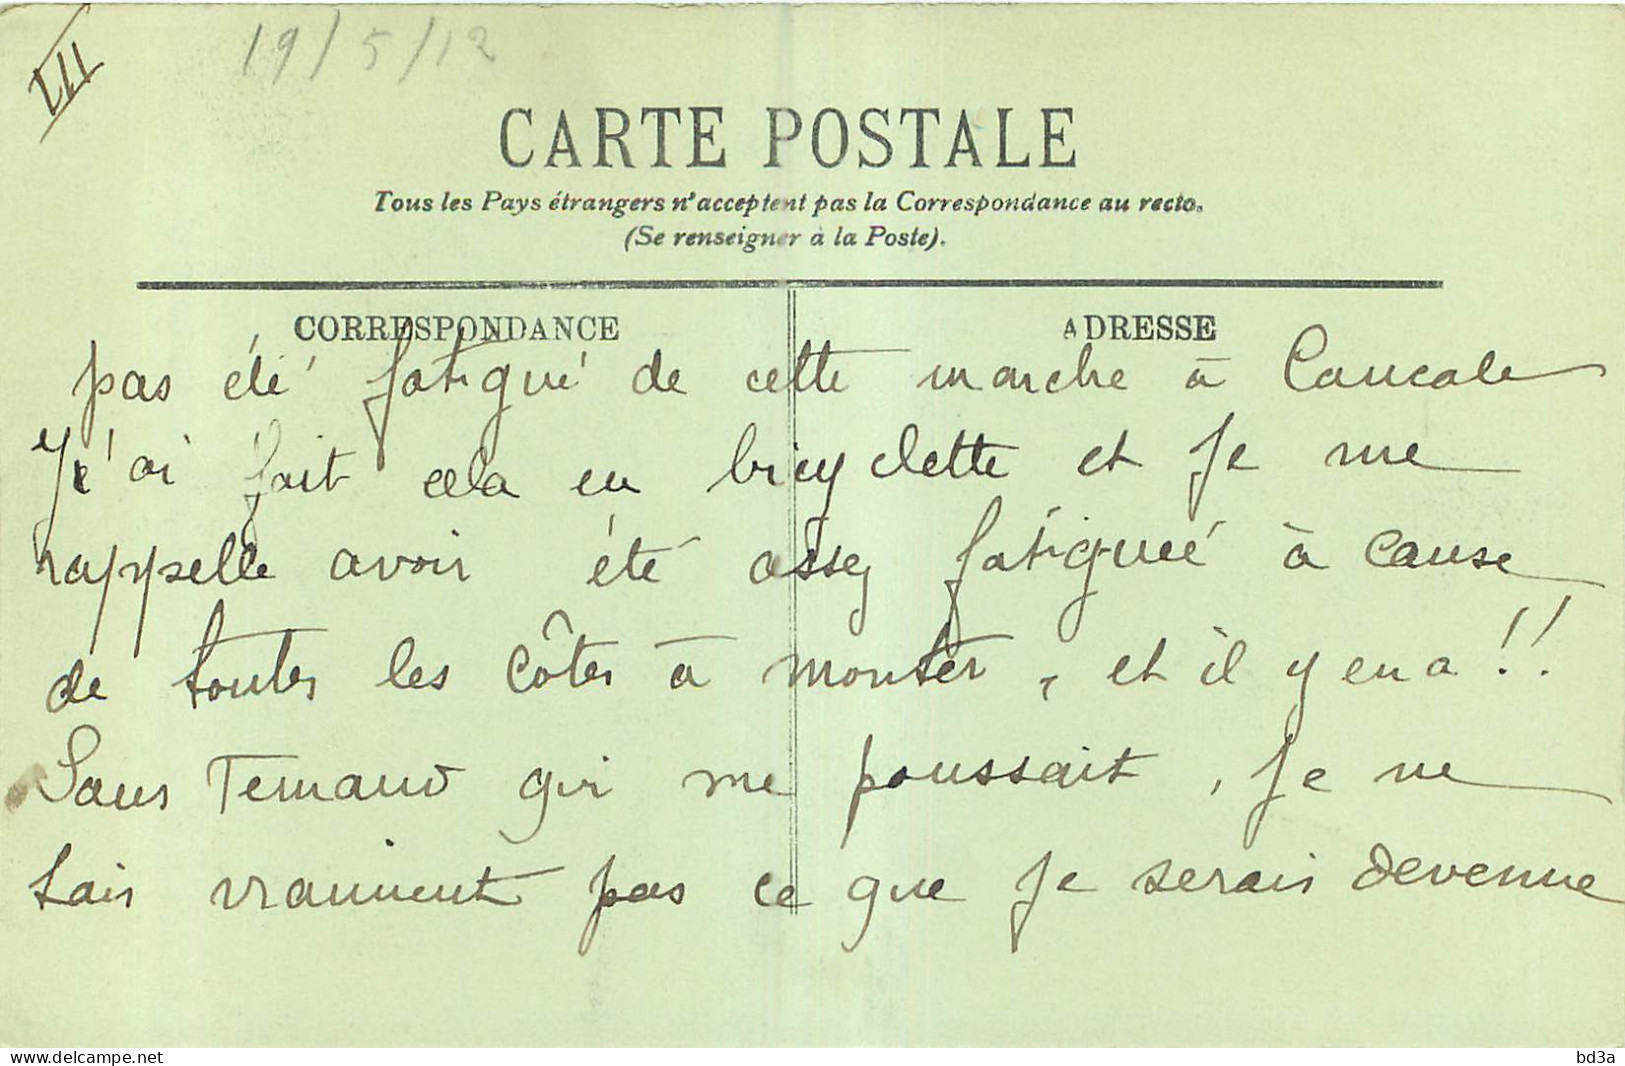 III
19/5/12
CARTE POSTALE
Tous les Pays étrangers n'acceptent pas la Correspondance au recto.
(Se renseigner à la Poste).
CORRESPONDANCE
ADRESSE
pas été fatigué de cette marche à Cancale
J'ai fait cela en bicyclette et je me
rappelle avoir été assez fatiguée à cause
de toutes les côtes à monter, et il y en a !!
Sans Fernand qui me poussait, je ne
sais vraiment pas ce que je serais devenue
www.delcampe.net
bd3a